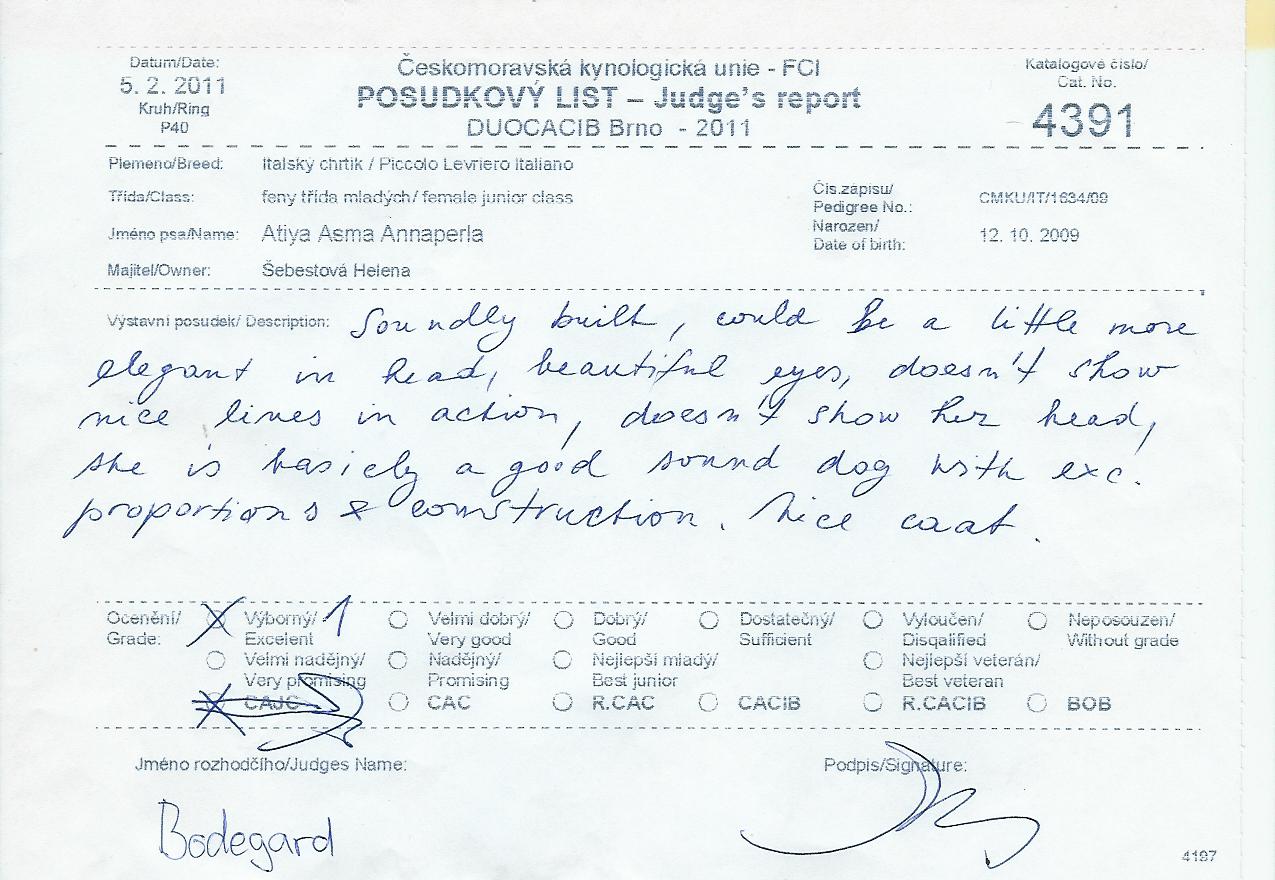 Datum/Date:
5. 2. 2011
Kruh/Ring
P40
Českomoravská kynologická unie - FCI
POSUDKOVÝ LIST – Judge's report
DUOCACIB Brno - 2011
Katalogové číslo/
Cat. No.
4391
Plemeno/Breed: Italský chrtik / Piccolo Levriero Italiano
Třída/Class: feny třída mladých/ female junior class
Jméno psa/Name: Atiya Asma Annaperla
Majitel/Owner: Šebestová Helena
Čis.zápisu/
Pedigree No.: CMKU/IT/1634/09
Narozen/
Date of birth: 12. 10. 2009
Výstavní posudek/ Description: Soundly built, could be a little more
elegant in head, beautiful eyes, doesn't show
nice lines in action, doesn't show her head,
she is basicly a good sound dog with exc.
proportions & construction. Nice coat.
Ocenění/
Grade:
Výborný/ 1
Excelent
Velmi dobrý/
Very good
Dobrý/
Good
Dostatečný/
Sufficient
Vyloučen/
Disqalified
Neposouzen/
Without grade
Velmi nadějný/
Very promising
Nadějný/
Promising
Nejlepší mladý/
Best junior
Nejlepší veterán/
Best veteran
CAJC CAC R.CAC CACIB R.CACIB BOB
Jméno rozhodčího/Judges Name:
Bodegard
Podpis/Signature:
4197